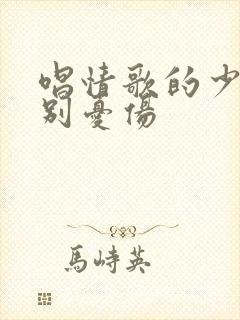 唱情歌的少
别憂傷
馬峙英